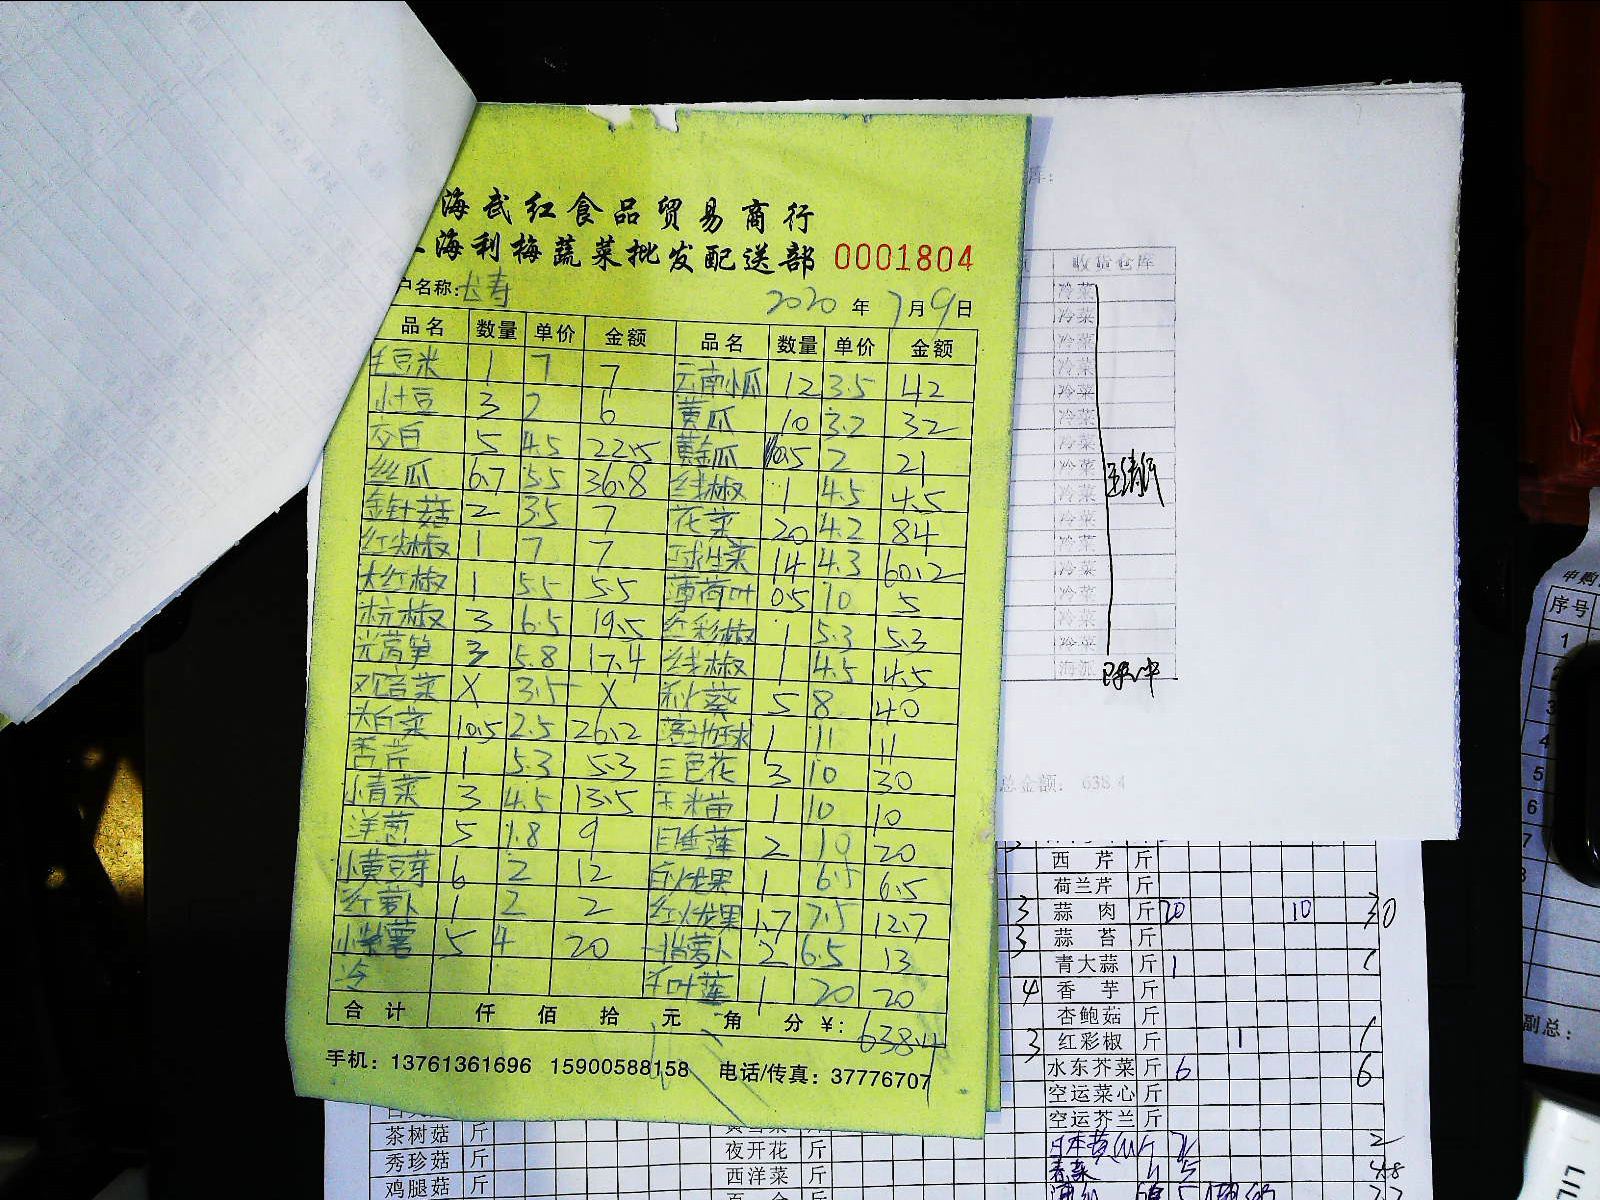 海武红食品贸易商行
海利梅蔬菜批发配送部 0001804
户名称:长寿 2020年7月9日
品名 数量 单价 金额 品名 数量 单价 金额
毛豆米 1 7 7 云南小瓜 12 3.5 42
小土豆 3 2 6 黄瓜 10 3.2 32
交白 5 4.5 22.5 黄金瓜 10.5 2 21
丝瓜 6.7 5.5 36.8 线椒 1 4.5 4.5
金针菇 2 3.5 7 花菜 20 4.2 84
红尖椒 1 7 7 球生菜 14 4.3 60.2
大红椒 1 5.5 5.5 薄荷叶 0.5 10 5
杭椒 3 6.5 19.5 红彩椒 1 5.3 5.3
光莴笋 3 5.8 17.4 线椒 1 4.5 4.5
观音菜 X 3.5 X 秋葵 5 8 40
大白菜 10.5 2.5 26.2 1 11 11
香芹 1 5.3 5.3 三色花 3 10 30
小青菜 3 4.5 13.5 玉米苗 1 10 10
洋葱 5 1.8 9 睡莲 2 10 20
小黄豆芽 6 2 12 白火龙果 1 6.5 6.5
红萝卜 1 2 2 红火龙果 1.7 7.5 12.7
小紫薯 5 4 20 萝卜 2 6.5 13
冷 1 20 20
合计 仟 佰 拾 元 角 分 ¥: 638.4
手机: 13761361696 15900588158 电话/传真: 37776707
库:
收货仓库
冷菜
冷菜
冷菜
冷菜
冷菜
冷菜
冷菜
冷菜
冷菜
冷菜
冷菜
冷菜
冷菜
冷菜
冷菜
总金额: 638.4
西芹 斤
荷兰芹 斤
3 蒜肉 斤 20 10 30
3 蒜苔 斤
青大蒜 斤 1 1
4 香芋 斤
杏鲍菇 斤
3 红彩椒 斤 1 1
水东芥菜 斤 6 6
空运菜心 斤
空运芥兰 斤
茶树菇 斤
秀珍菇 斤
鸡腿菇 斤
夜开花 斤
西洋菜 斤
申购
序号
1
3
4
5
6
7
副总: